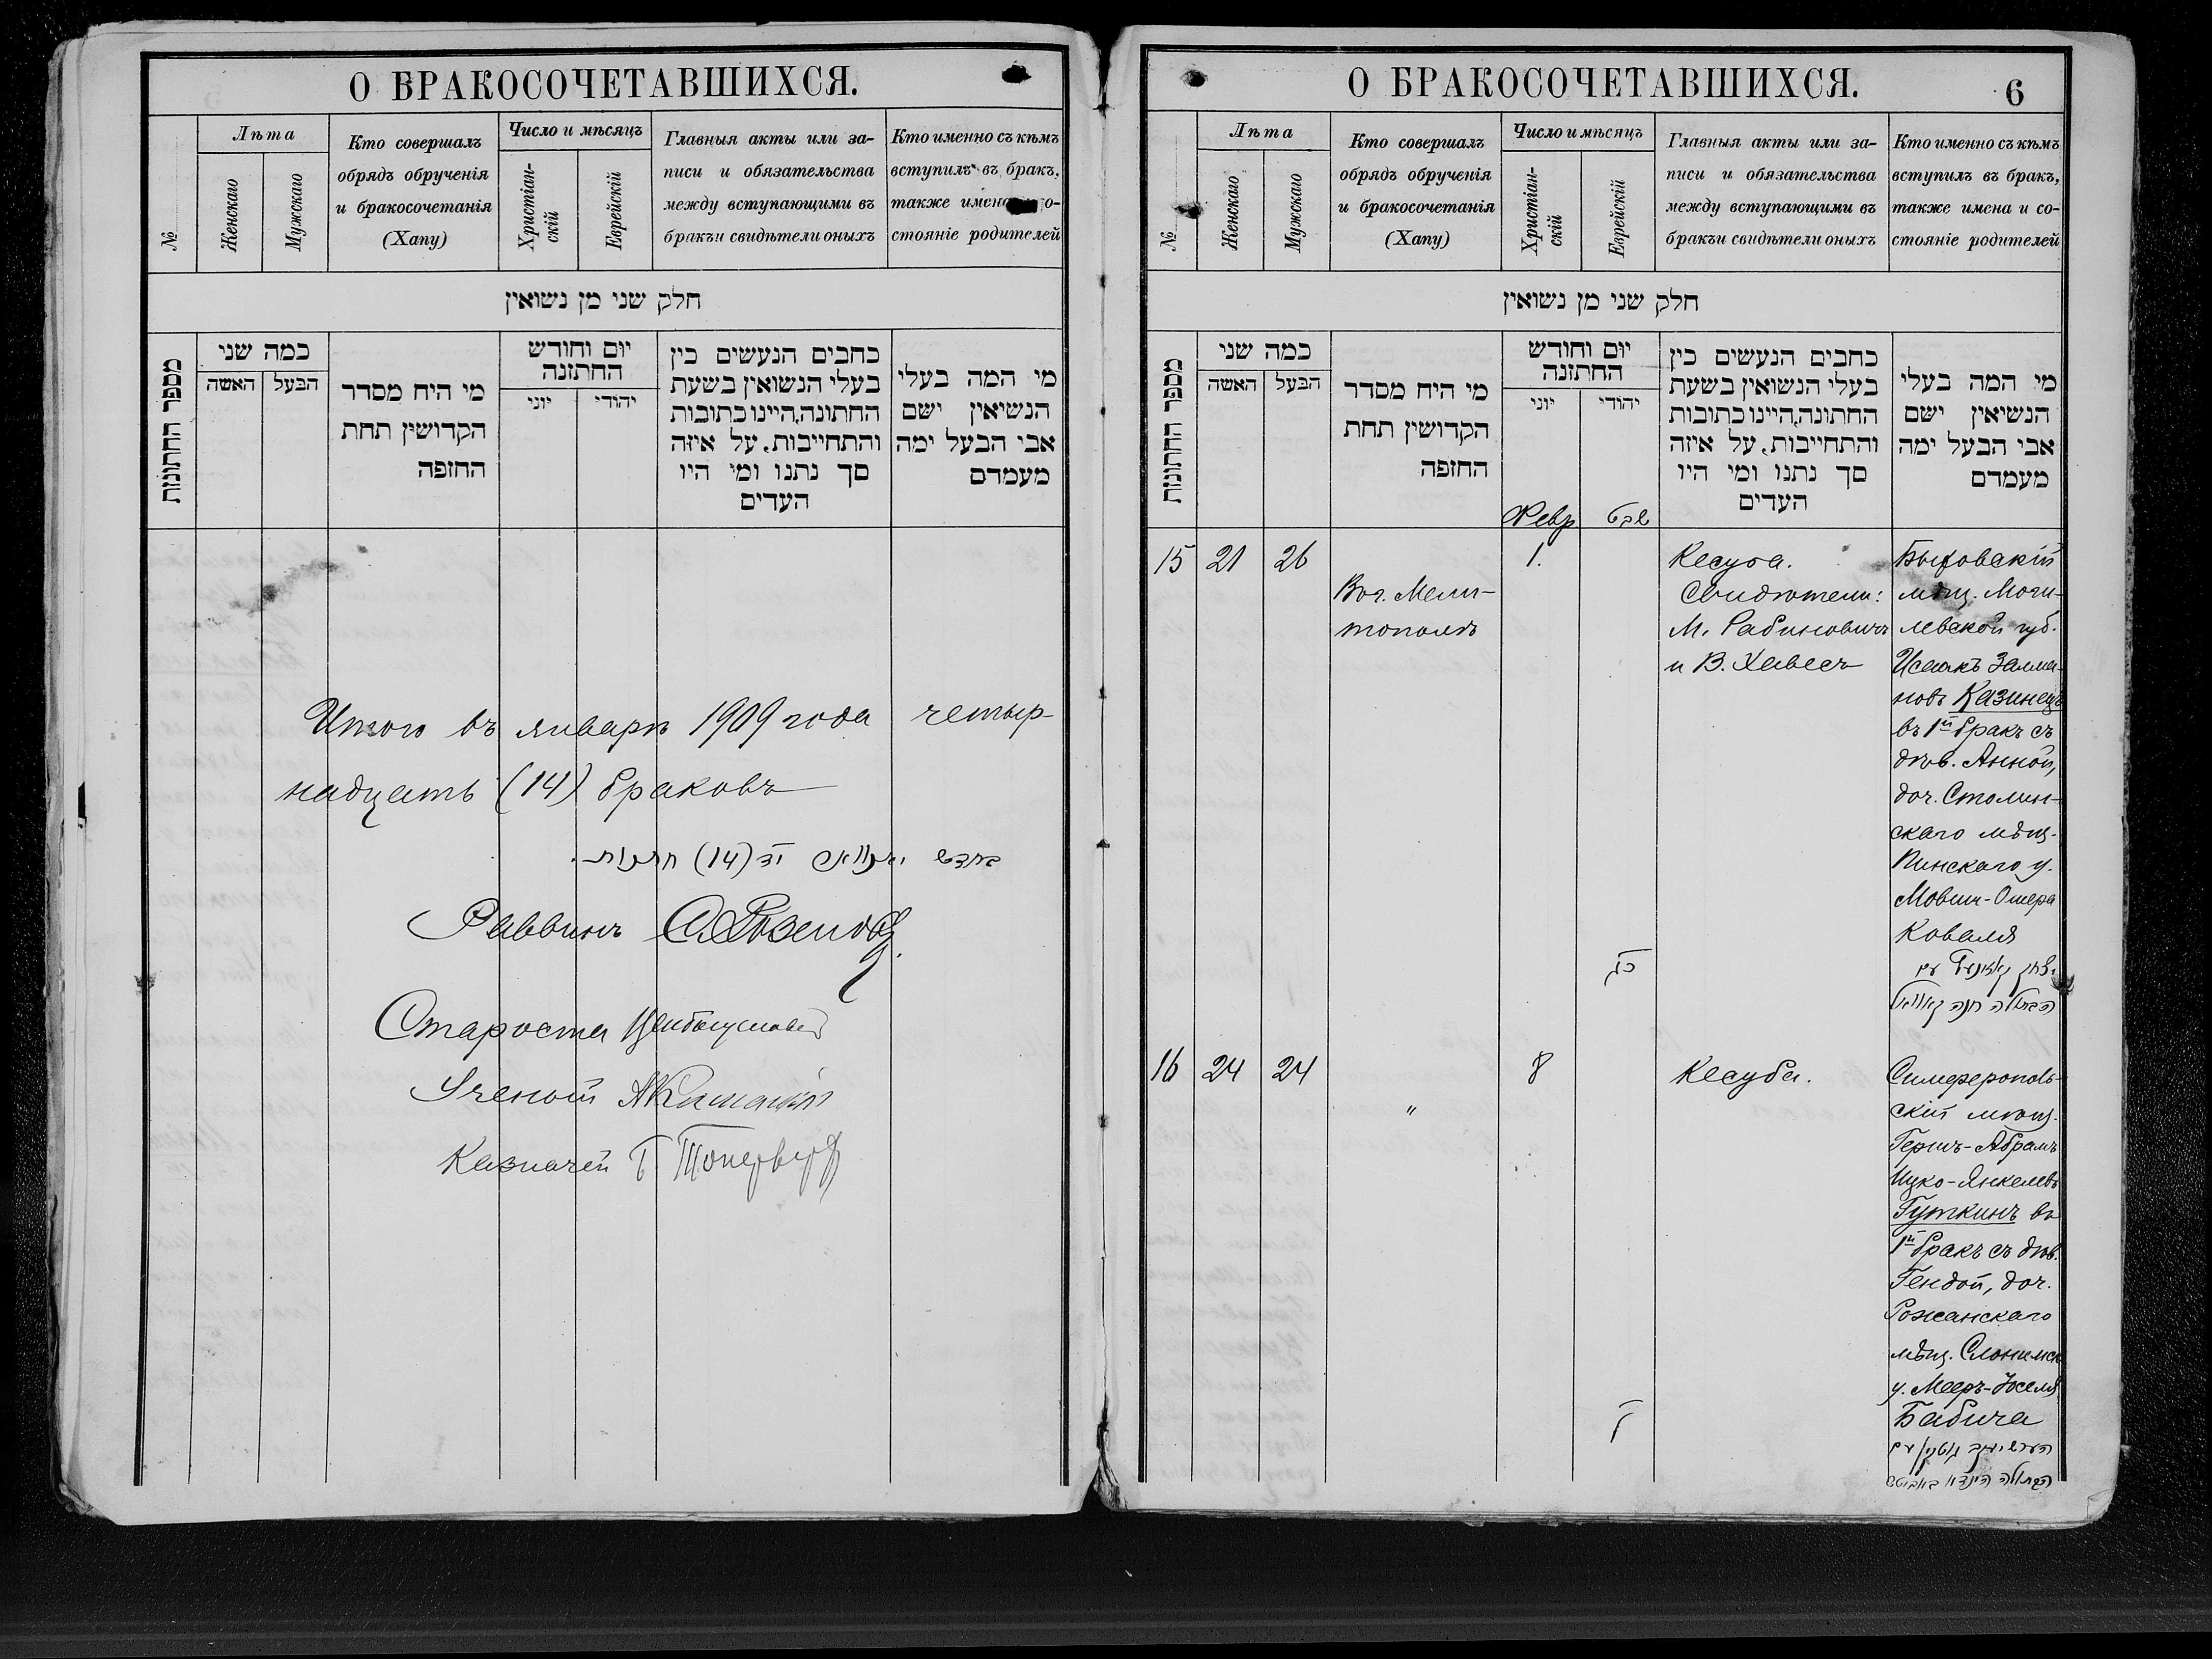 О БРАКОСОЧЕТАВШИХСЯ.
№
Лѣта
Женскаго
Мужскаго
Кто совершалъ
обрядъ обрученія
и бракосочетанія
(Хапу)
Число и мѣсяцъ
Христіан-
скій
Еврейскій
Главныя акты или за-
писи и обязательства
между вступающими въ
бракъи свидѣтели оныхъ
Кто именно съ кѣмъ
вступилъ въ бракъ,
также имена о-
стояніе родителей
חלק שני מן נשואין
מספר החתונות
כמה שני
האשה
הבעל
מי היח מסדר
הקדושין תחת
החופה
יום וחודש
החתונה
יוני
יהודי
כחבים הנעשים כין
בעלי הנשואין בשעת
החתונה,היינו כתובות
והתחייבות, על איזה
סך נתנו ומי היו
העדים
מי המה בעלי
הנשיאין ישם
אבי הבעל ימה
מעמדם
Итого въ январѣ 1909 года четыр-
надцать (14) браковъ
בחדש יאנואר יד (14) חתונות
Раввинъ
Староста
Ученый
Казначей Б
О БРАКОСОЧЕТАВШИХСЯ.
6
№
Лѣта
Женскаго
Мужскаго
Кто совершалъ
обрядъ обрученія
и бракосочетанія
(Хапу)
Число и мѣсяцъ
Христіан-
скій
Еврейскій
Главныя акты или за-
писи и обязательства
между вступающими въ
бракъи свидѣтели оныхъ
Кто именно съ кѣмъ
вступилъ въ бракъ,
также имена и со-
стояніе родителей
חלק שני מן נשואין
מספר החתונות
כמה שני
האשה
הבעל
מי היח מסדר
הקדושין תחת
החופה
יום וחודש
החתונה
יוני
יהודי
כחבים הנעשים כין
בעלי הנשואין בשעת
החתונה,היינו כתובות
והתחייבות, על איזה
סך נתנו ומי היו
העדים
מי המה בעלי
הנשיאין ישם
אבי הבעל ימה
מעמדם
Февр שבט
15 21 26
Въ г. Мели-
тополѣ
1.
כג
Кесуба.
Свидѣтели:
М. Рабиновичъ
и В. Хавесъ
Быховскій
мѣщ. Моги-
левской губ.
Исаакъ Залма-
новъ Казинецъ
въ 1й бракъ съ
дѣв. Анной,
доч. Столин-
скаго мѣщ.
Пинскаго у.
Мовши-Ошера
Коваля
יצחק קאזינעץ עם
הבתולה חנה קאוואל
16 24 24
"
8
ל
Кесуба.
Симферополь-
скій мѣщ.
Гершъ-Абрамъ
Ицко-Янкелевъ
Гуткинъ въ
1й бракъ съ дѣв.
Гендой, доч.
Рожанскаго
мѣщ. Слонимск.
у. Мееръ-Іоселя
Бабича
הערש יעקב גוטקין עם
הבתולה הינדא באביטש